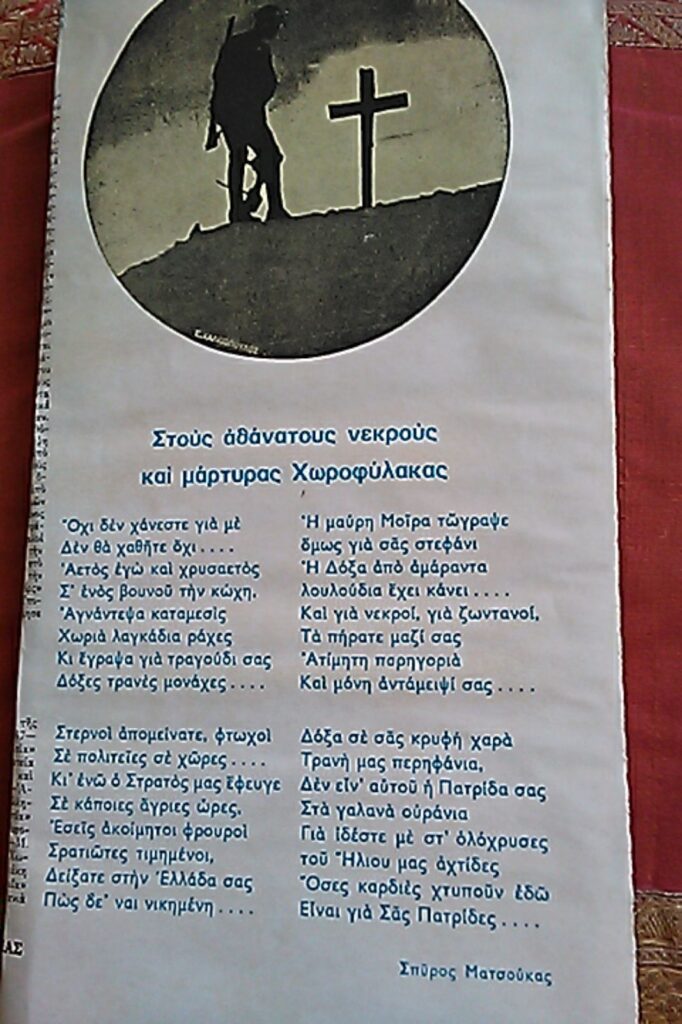 Στοὺς ἀθάνατους νεκροὺς
καὶ μάρτυρας Χωροφύλακας
Ὄχι δὲν χάνεστε γιὰ μὲ
Δὲν θὰ χαθῆτε ὄχι....
Ἀετὸς ἐγὼ καὶ χρυσαετὸς
Σ' ἑνὸς βουνοῦ τὴν κώχη,
Ἀγνάντεψα καταμεσὶς
Χωριὰ λαγκάδια ράχες
Κι ἔγραψα γιὰ τραγούδι σας
Δόξες τρανὲς μονάχες....
Στερνοὶ ἀπομείνατε, φτωχοὶ
Σὲ πολιτεῖες σὲ χῶρες....
Κι' ἐνῶ ὁ Στρατός μας ἔφευγε
Σὲ κάποιες ἄγριες ὧρες,
Ἐσεῖς ἀκοίμητοι φρουροὶ
Σρατιῶτες τιμημένοι,
Δείξατε στὴν Ἑλλάδα σας
Πὼς δε' ναι νικημένη....
Ἡ μαύρη Μοῖρα τὤγραψε
ὅμως γιὰ σᾶς στεφάνι
Ἡ Δόξα ἀπὸ ἀμάραντα
λουλούδια ἔχει κάνει....
Καὶ γιὰ νεκροί, γιὰ ζωντανοί,
Τὰ πήρατε μαζί σας
Ἀτίμητη παρηγοριὰ
Καὶ μόνη ἀντάμειψί σας....
Δόξα σὲ σᾶς κρυφὴ χαρὰ
Τρανή μας περηφάνια,
Δὲν εἶν' αὐτοῦ ἡ Πατρίδα σας
Στὰ γαλανὰ οὐράνια
Γιὰ ἰδέστε μὲ στ' ὁλόχρυσες
τοῦ Ἥλιου μας ἀχτίδες
Ὅσες καρδιὲς χτυποῦν ἐδῶ
Εἶναι γιὰ Σᾶς Πατρίδες....
Σπῦρος Ματσούκας